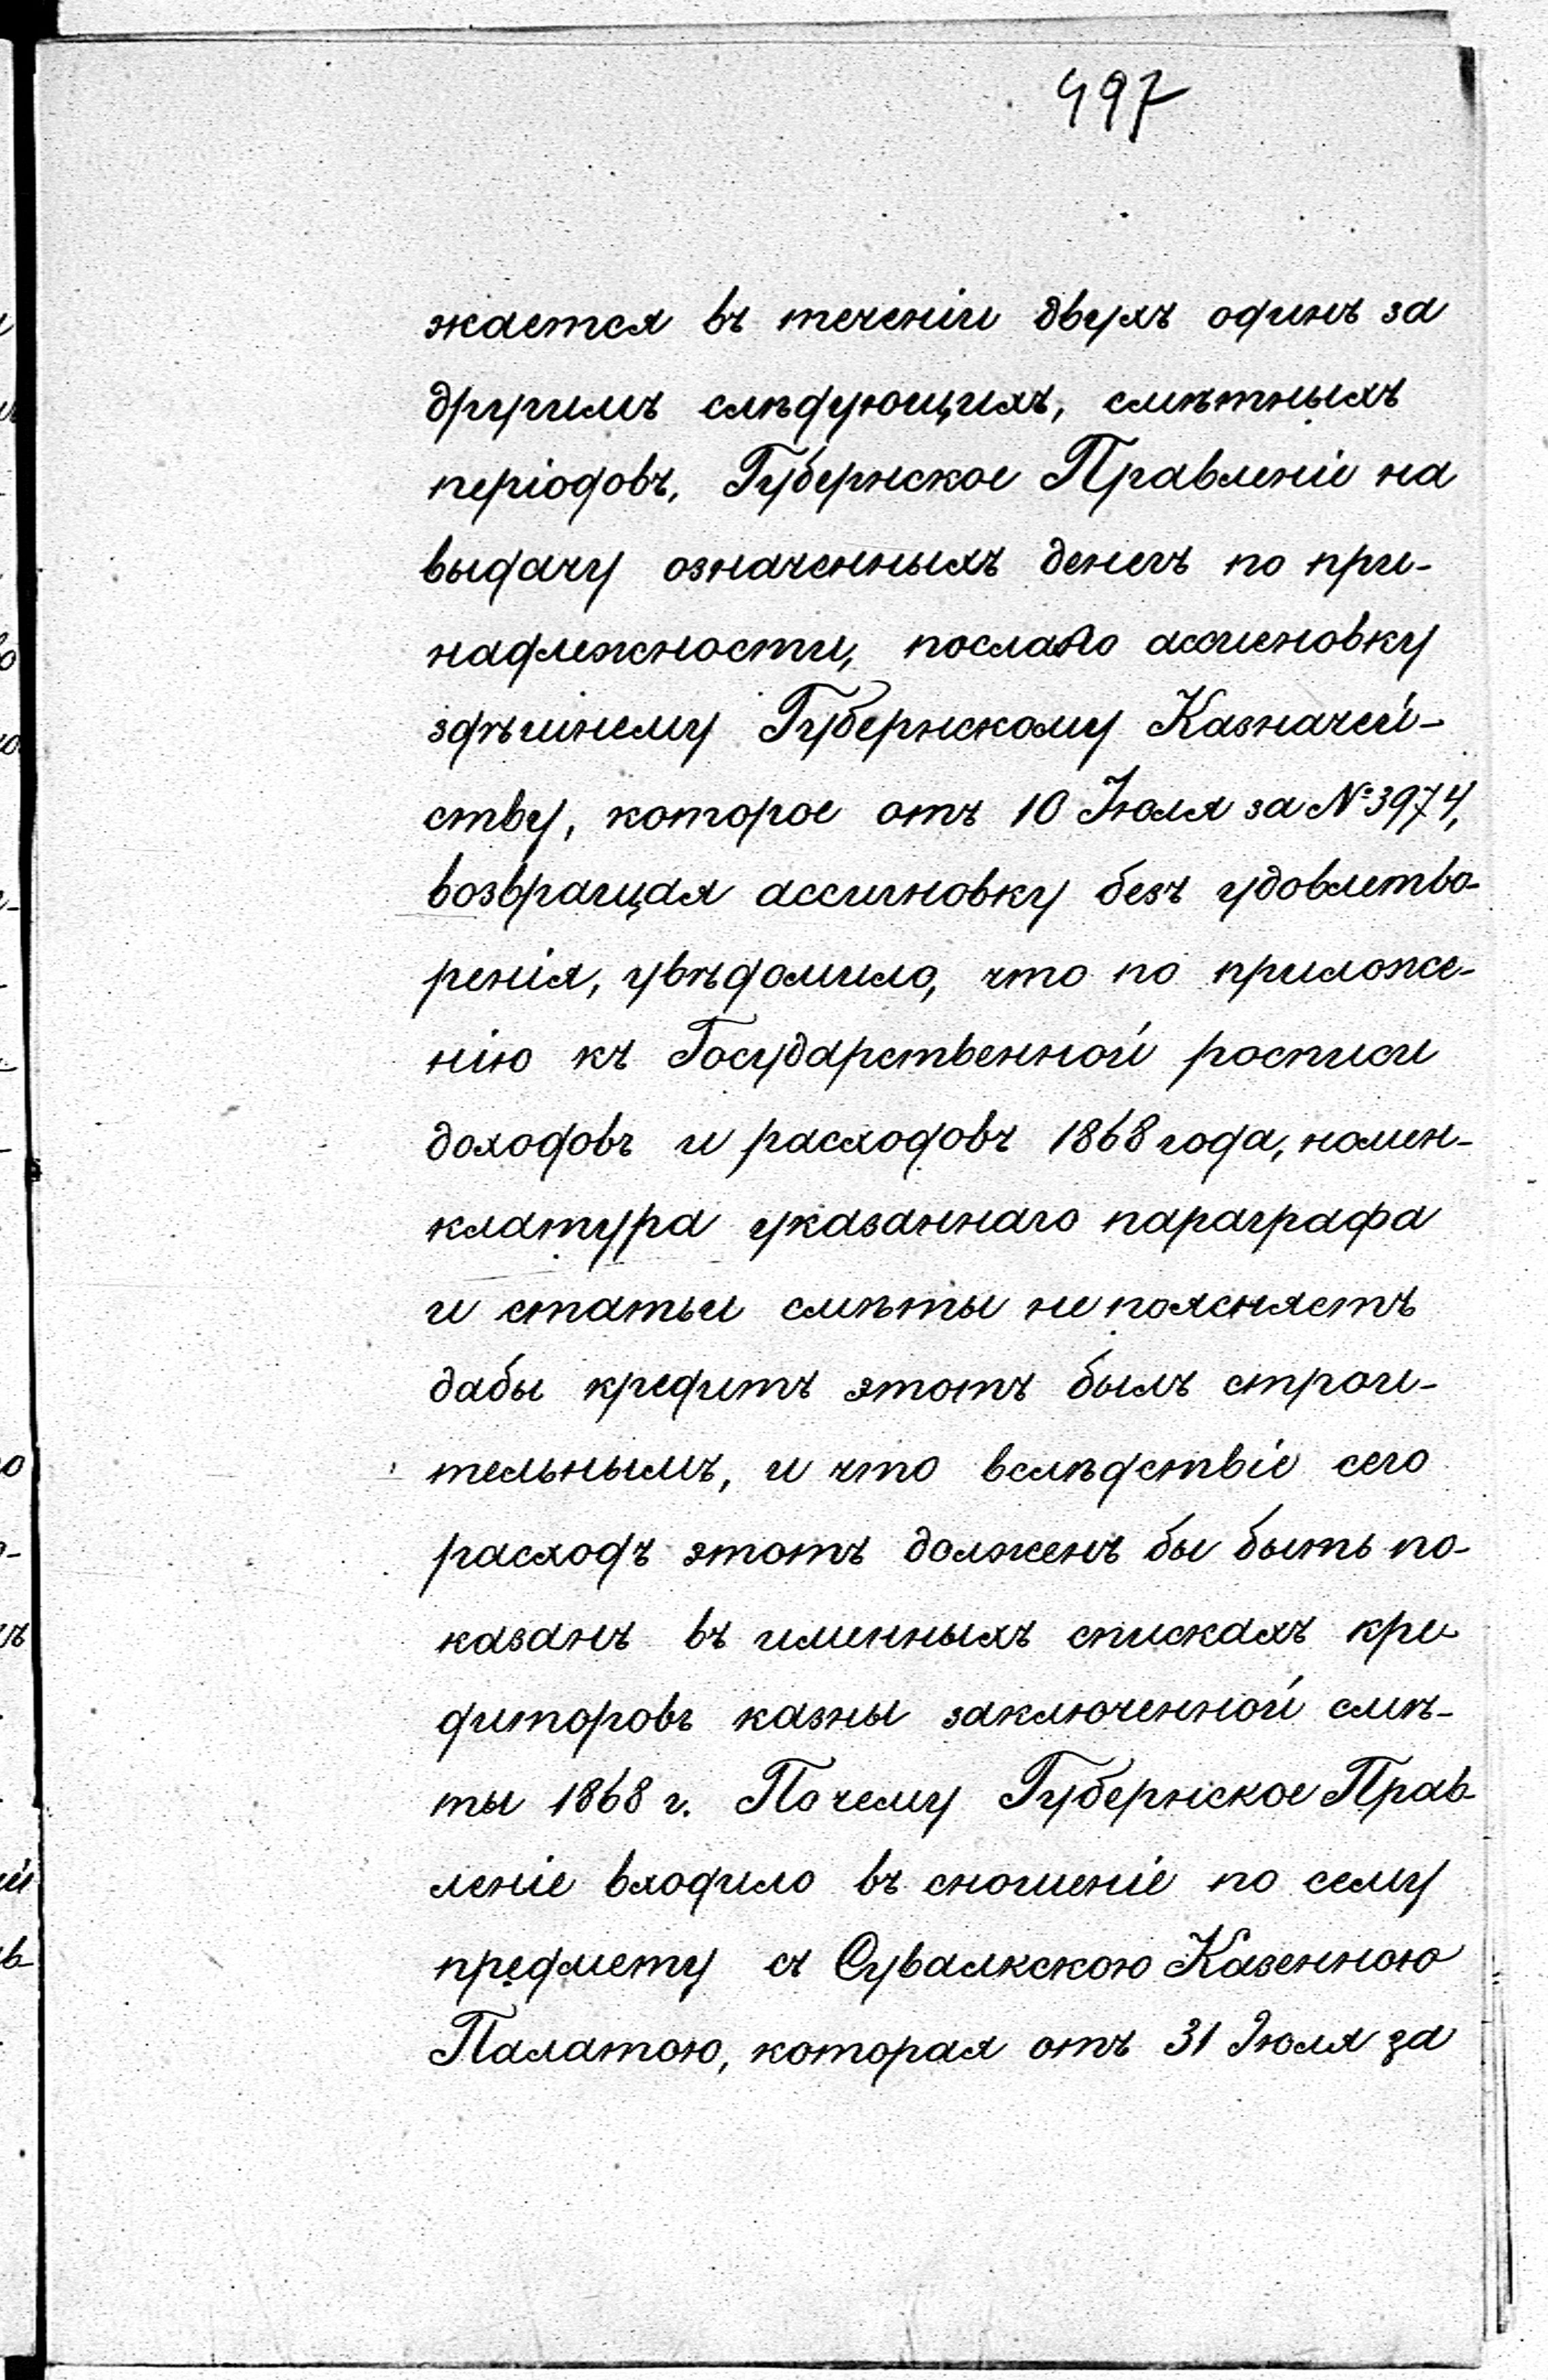 497
жается въ теченіи двухъ одинъ за
другимъ слѣдующихъ, смѣтныхъ
періодовъ, Губернское Правленіе на
выдачу означенныхъ денегъ по при-
надлежности, послало ассигновку
здѣшнему Губернскому Казначей-
ству, которое отъ 10 Іюля за №3974,
возвращая ассигновку безъ удовлетво-
ренія, увѣдомило, что по приложе-
нію къ Государственной росписи
доходовъ и расходовъ 1868 года, номен-
клатура указаннаго параграфа
и статьи смѣты не поясняетъ
дабы кредитъ этотъ былъ строи-
тельнымъ, и что вслѣдствіе сего
расходъ этотъ долженъ бы быть по-
казанъ въ именныхъ спискахъ кре-
диторовъ казны заключенной смѣ-
ты 1868 г. Почему Губернское Прав-
леніе входило въ сношеніе по сему
предмету съ Сувалкскою Казенною
Палатою, которая отъ 31 Іюля за